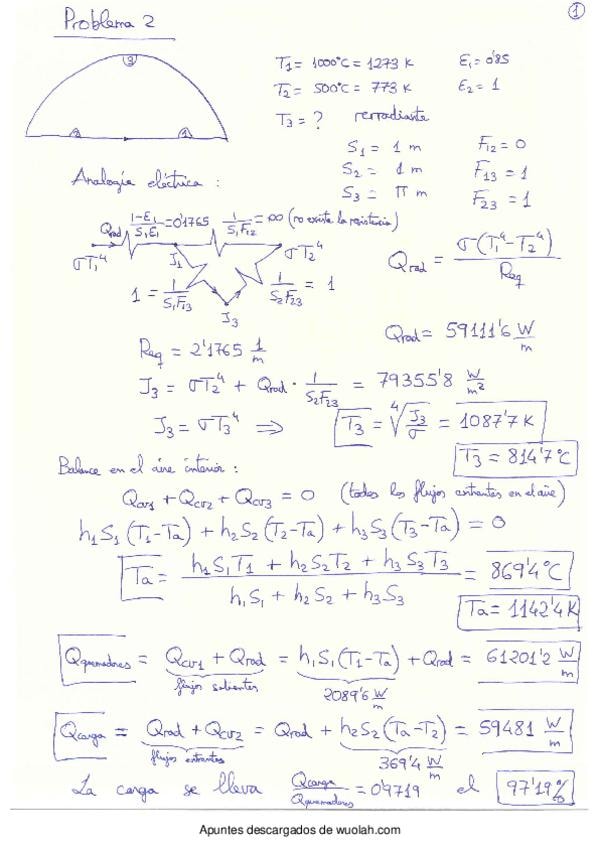 ①
Problema 2
③
② ①
T₁ = 1000°C = 1273 K   ε₁ = 0'85
T₂ = 500°C = 773 K   ε₂ = 1
T₃ = ?   rerradiante
S₁ = 1 m   F₁₂ = 0
S₂ = 1 m   F₁₃ = 1
S₃ = π m   F₂₃ = 1
Analogía eléctrica :
Qrad (1-ε₁)/(S₁ε₁) = 0'1765   1/(S₁F₁₂) = ∞ (no existe la resistencia)
σT₁⁴   J₁   σT₂⁴   Qrad = σ(T₁⁴-T₂⁴)/Req
1 = 1/(S₁F₁₃)   1/(S₂F₂₃) = 1
J₃
Qrad = 59111'6 W/m
Req = 2'1765 1/m
J₃ = σT₂⁴ + Qrad · 1/(S₂F₂₃) = 79355'8 W/m²
J₃ = σT₃⁴ ⟹ T₃ = ⁴√(J₃/σ) = 1087'7 K
T₃ = 814'7°C
Balance en el aire interior :
Qcv1 + Qcv2 + Qcv3 = 0 (todos los flujos entrantes en el aire)
h₁S₁(T₁-Ta) + h₂S₂(T₂-Ta) + h₃S₃(T₃-Ta) = 0
Ta = (h₁S₁T₁ + h₂S₂T₂ + h₃S₃T₃)/(h₁S₁ + h₂S₂ + h₃S₃) = 869'4°C
Ta = 1142'4 K
Qquemadores = Qcv1 + Qrad = h₁S₁(T₁-Ta) + Qrad = 61201'2 W/m
flujos salientes   2089'6 W/m
Qcarga = Qrad + Qcv2 = Qrad + h₂S₂(Ta-T₂) = 59481 W/m
flujos entrantes   369'4 W/m
La carga se lleva Qcarga/Qquemadores = 0'9719 el 97'19%
Apuntes descargados de wuolah.com